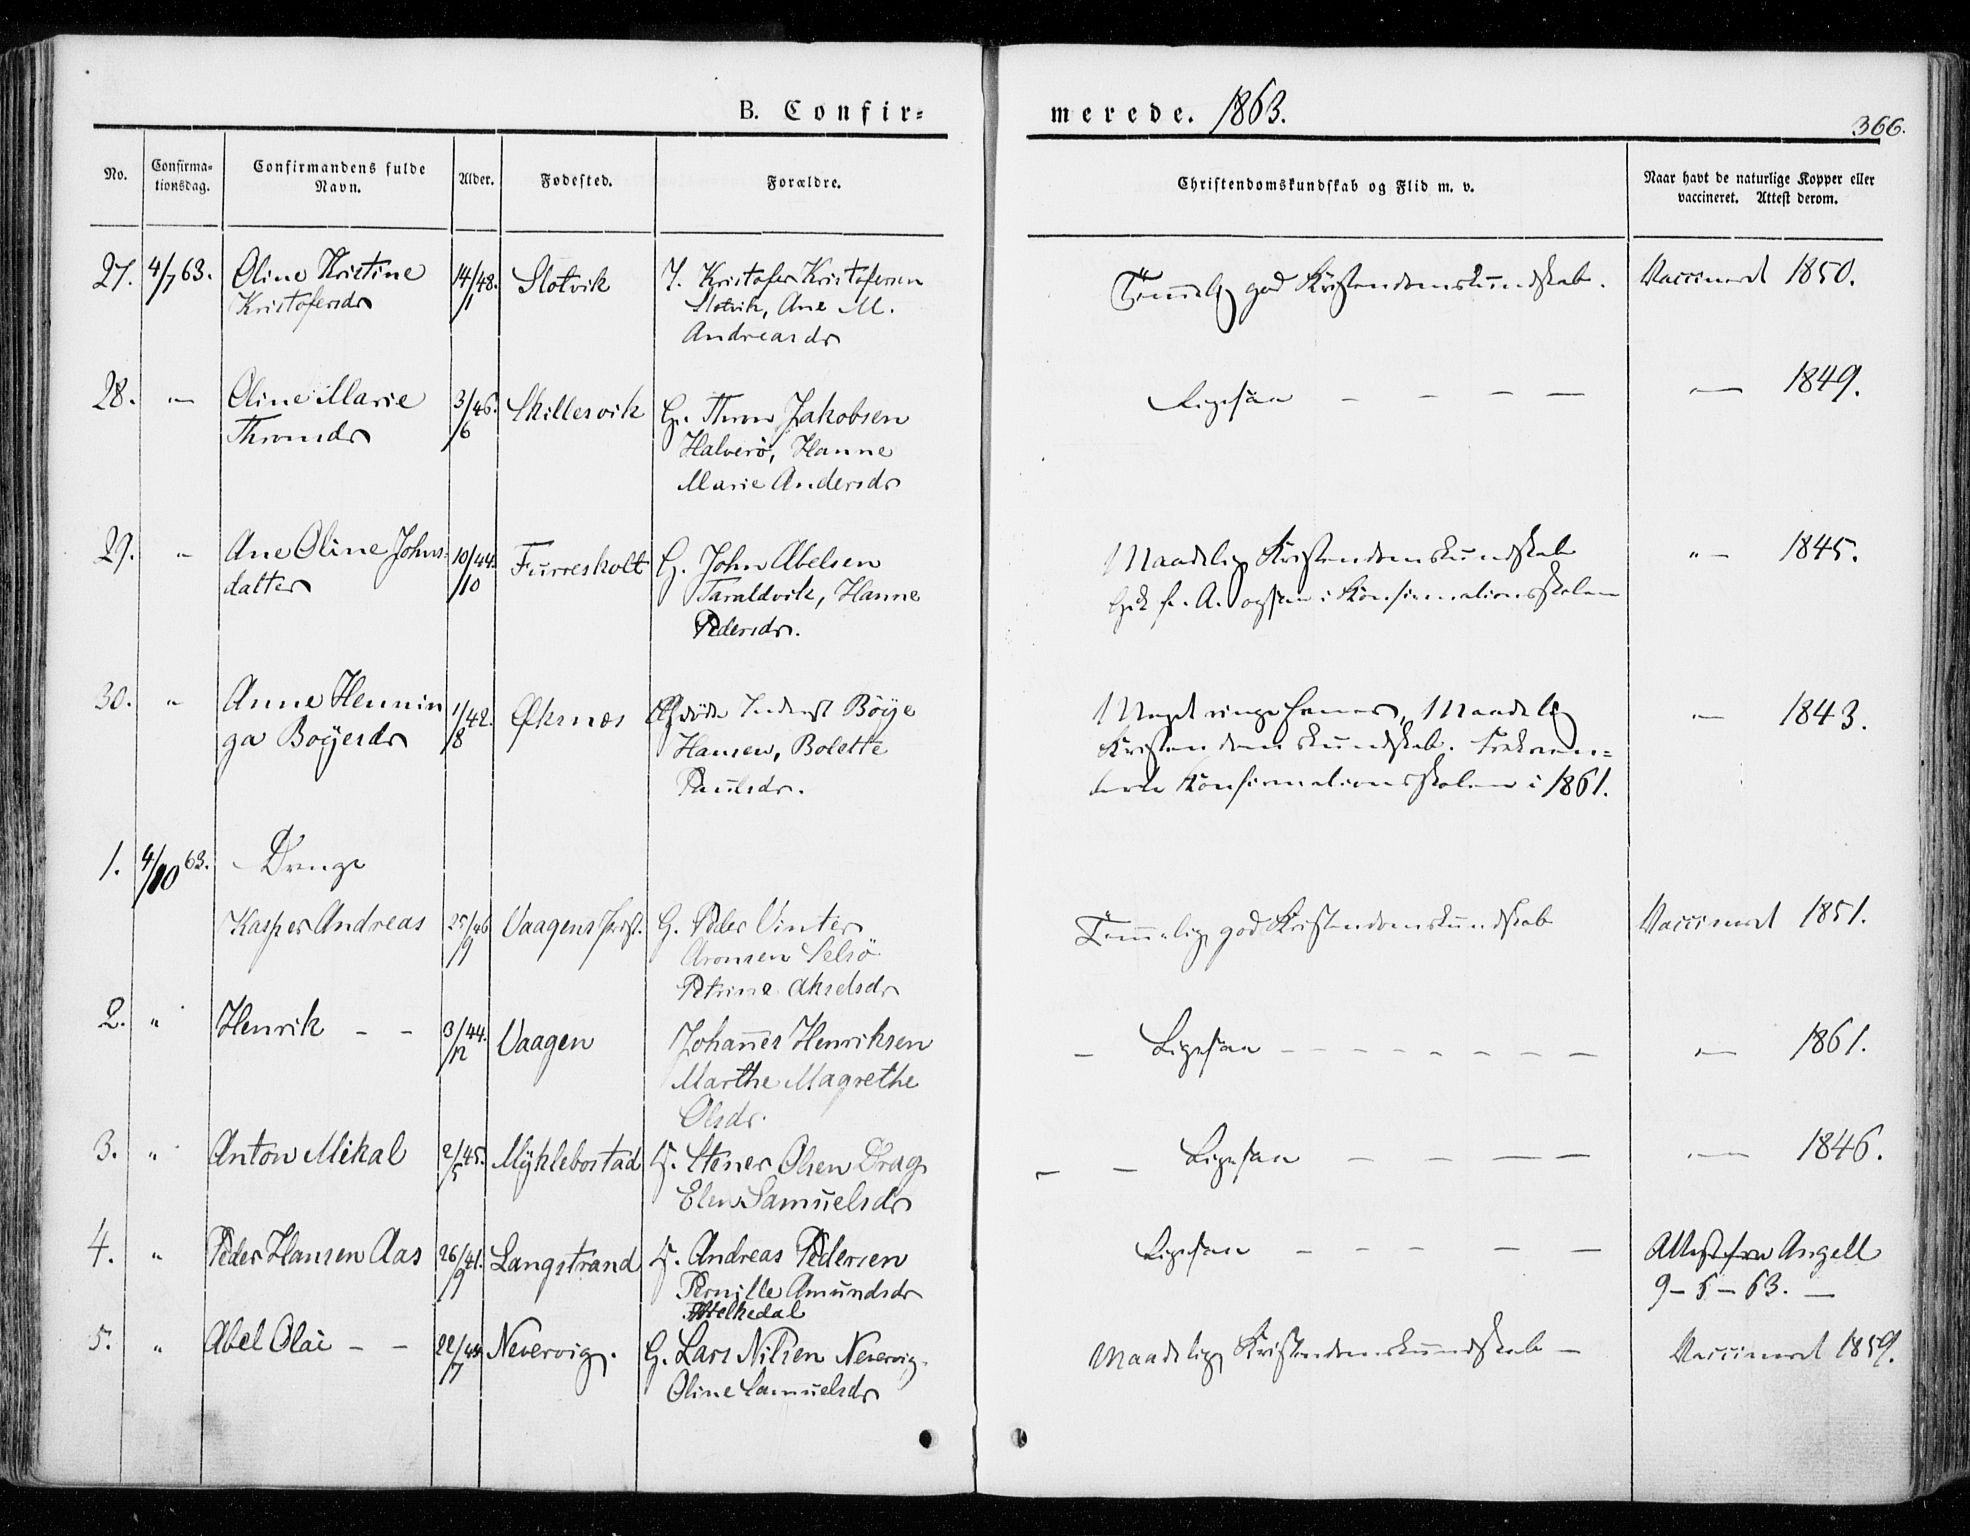 B. Confir=
merede. 1863.
366.
No.
Confirma=
tionsdag.
Confirmandens fulde
Navn.
Alder.
Fødested.
Forældre.
Christendomskundskab og Flid m. v.
Naar havt de naturlige Kopper eller
vaccineret. Attest derom.
27. 4/7 63. Oline Kristine 14/48. Slotvik I. Kristofer Kristofersen Vaccineret 1850.
Kristofersdr /1 Slotvik, Ane M. god Kristendomskundskab.
Andreasdr
28. — Oline Marie 3/46. Skillesvik G. Thron Jakobsen Ligesaa — — — — — 1849.
Thronsdr /6 Halverö, Hanne
Marie Andersdr
29. " Ane Oline Johns= 10/44. Furresholt G. John Abelsen Maadelig Kristendomskundskab " — 1845.
datter /10 Taraldvik, Hanne Gik f. A. ogsaa i Konfirmationsskolen
Pedersdr.
30. " Anne Hennin 1/42. Øksnes Böye Meget ringe Evner, Maadelig — 1843.
ga Boyesdr /8 Hansen, Bolette Kristendomskundskab.
Paulsdr. Konfirmationsskolen i 1861.
1. 4/10 63. Drenge
Kasper Andreas 25/46 Vaagens G. Peder Vinter god Kristendomskundskab Vaccineret 1851.
/9 Aronsen Selsö
Petrine Akselsdr
2. " Henrik — — 3/44. Vaagen Johannes Henriksen — Ligesaa — — — — — — — — — 1861.
/12 Marthe Magrethe
Olsdr.
3. " Anton Mikal 2/45. Myklebostad Stener Olsen Drag — — Ligesaa — — — — — 1846.
/5 Elen Samuelsdr
4. " Peder Hansen Aas 26/41. Langstrand Andreas Pedersen Ligesaa — — — — — Attest fra Angell
/9 Pernille Amundsdr 9 — 5 — 63. —
5. " Abel Olai — — 22/ Nevervig. G. Lars Nilsen Nevervig. Maadelig Kristendomskundskab — Vaccineret 1859.
/7 Oline Samuelsdr